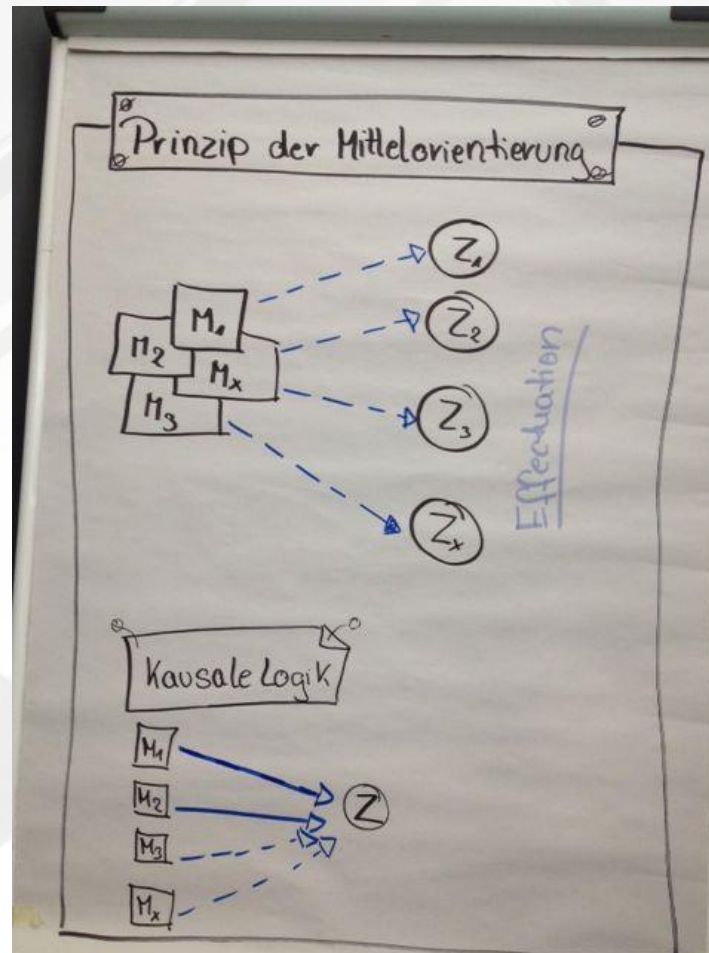 Prinzip der Mittelorientierung
Z1
M1
Z2
M2
Mx
M3
Z3
Effectuation
Zx
Kausale Logik
M1
M2
Z
M3
Mx